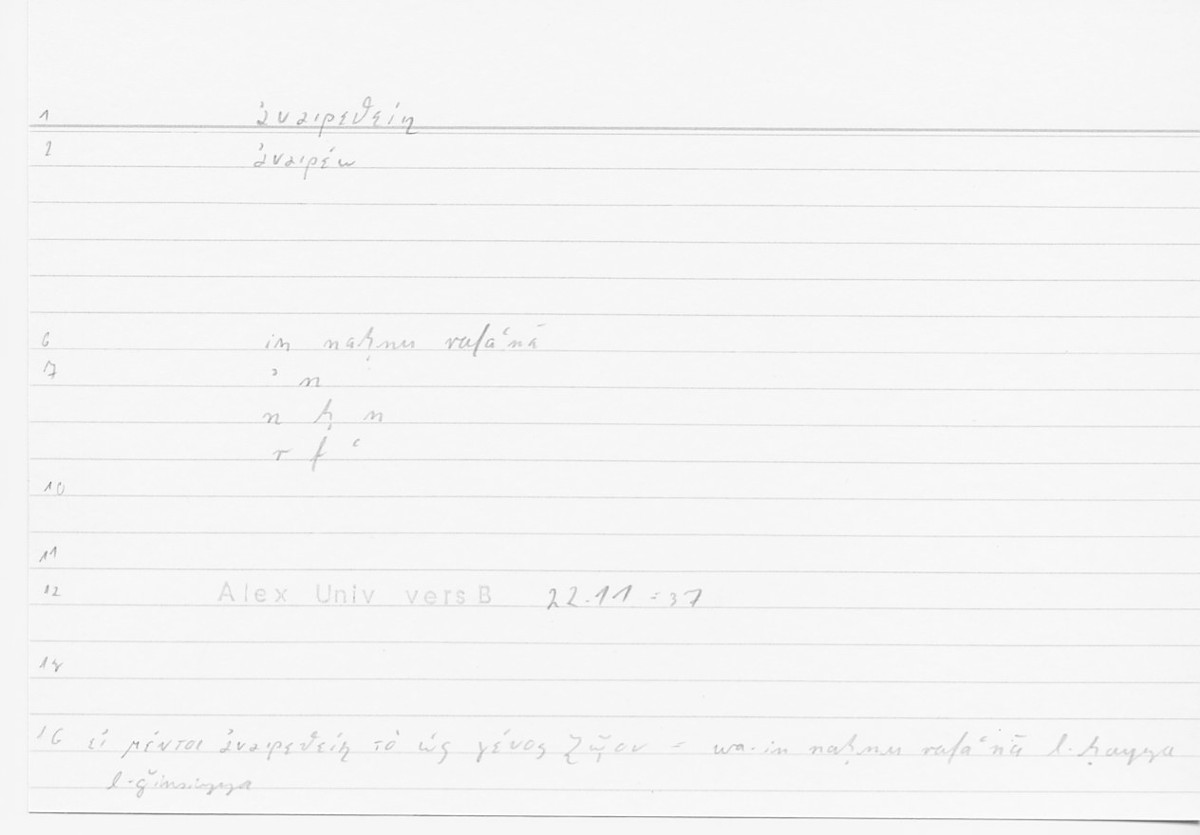 1 ἀναιρεθείη
2 ἀναιρέω
6 in naḥnu rafaʿnā
7 ʾ n
n ḥ n
r f ʿ
10
11
12 Alex Univ vers B 22.11 = 37
14
16 εἰ μέντοι ἀναιρεθείη τὸ ὡς γένος ζῷον = wa-in naḥnu rafaʿnā l-ḥayya
l-ǧinsiyya